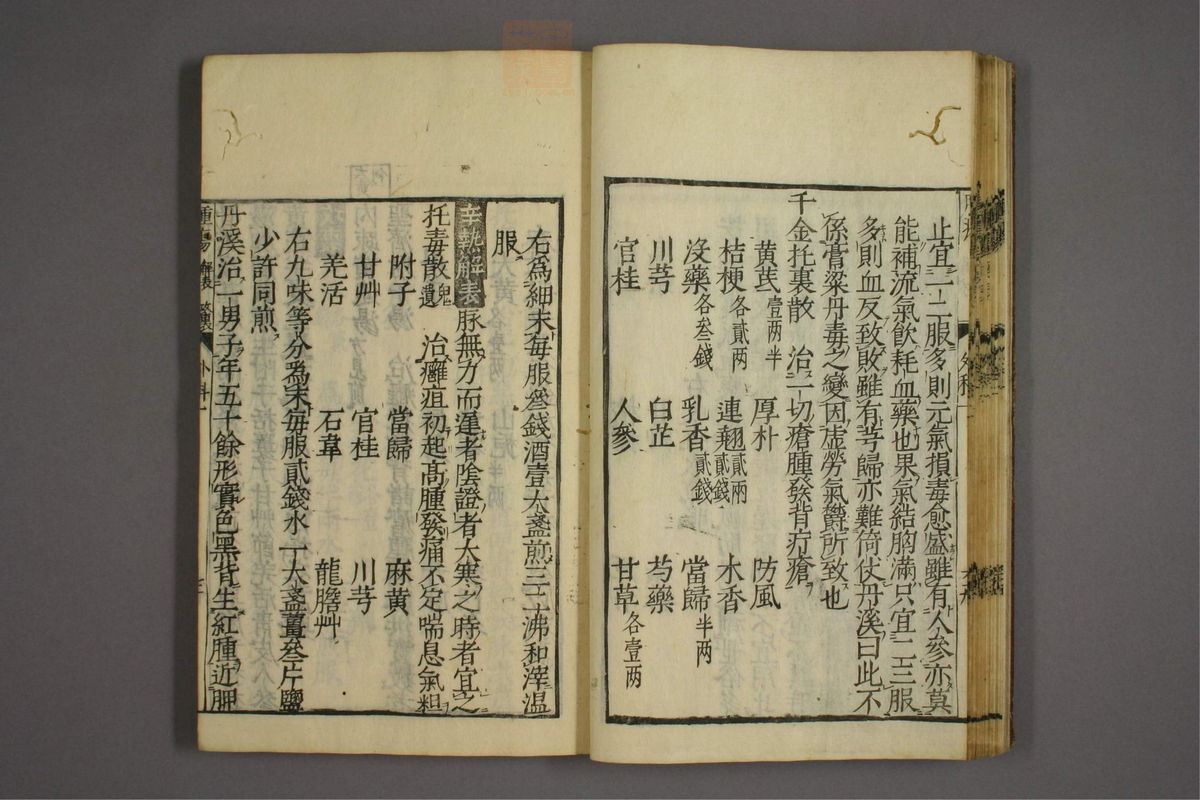 止宜一二服多則元氣損毒愈盛雖有人參亦莫
能補流氣飲耗血藥也果氣結胸滿只宜二三服
多則血反致敗雖有芎歸亦難倚仗丹溪曰此不
係膏粱丹毒之變因虛勞氣欝所致也
千金托裏散 治一切瘡腫發背疔瘡
黄茋壹两半 厚朴 防風
桔梗各貳两 連翹貳兩貳錢 木香
沒藥各叁錢 乳香貳錢 當歸半两
川芎 白芷 芍藥
官桂 人參 甘草各壹两
右爲細末每服叄錢酒壹大盞煎三二沸和滓温
服
辛熱解表 脉無力而遲者陰證者大寒之時者宜之
托毒散鬼遺 治癰疽初起高腫發痛不定喘息氣粗
附子 當歸 麻黄
甘艸 官桂 川芎
羌活 石韋 龍膽艸
右九味等分爲末每服貳錢水一大盞薑叄片鹽
少許同煎
丹溪治一男子年五十餘形實色黑背生紅腫近胛
外科一